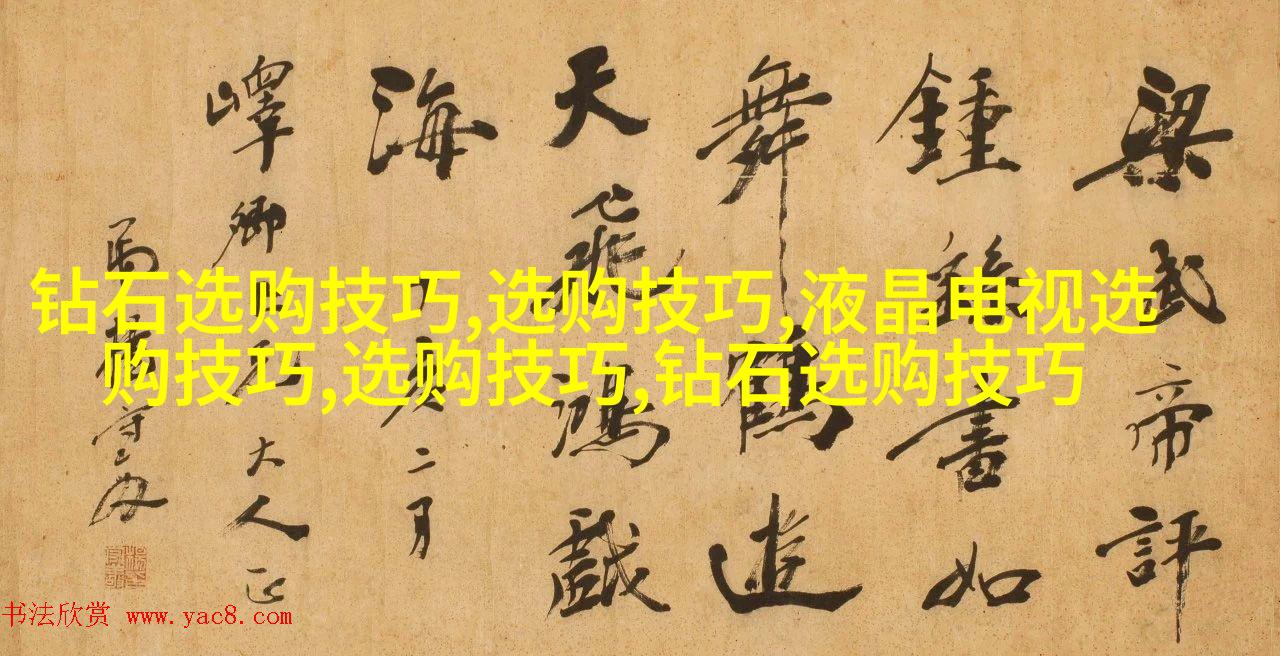 梁武帝評
鍾繇書如
舞鶴遊
天飛鴻戲
海
二月
嶧卿
大人正
守敬
钻石选购技巧,选购技巧,液晶电视选
购技巧,选购技巧,钻石选购技巧
书法欣赏 www.yac8.com